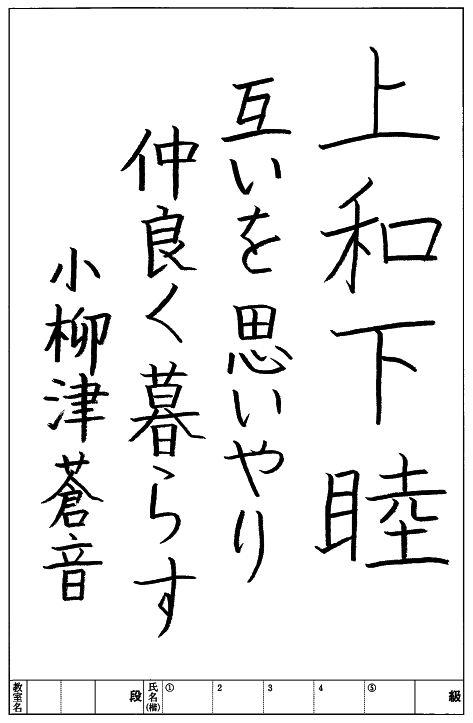 上和下睦
互いを思いやり
仲良く暮らす
小柳津蒼音
級
⑤
4
3
2
①
氏名(楷)
段
教室名